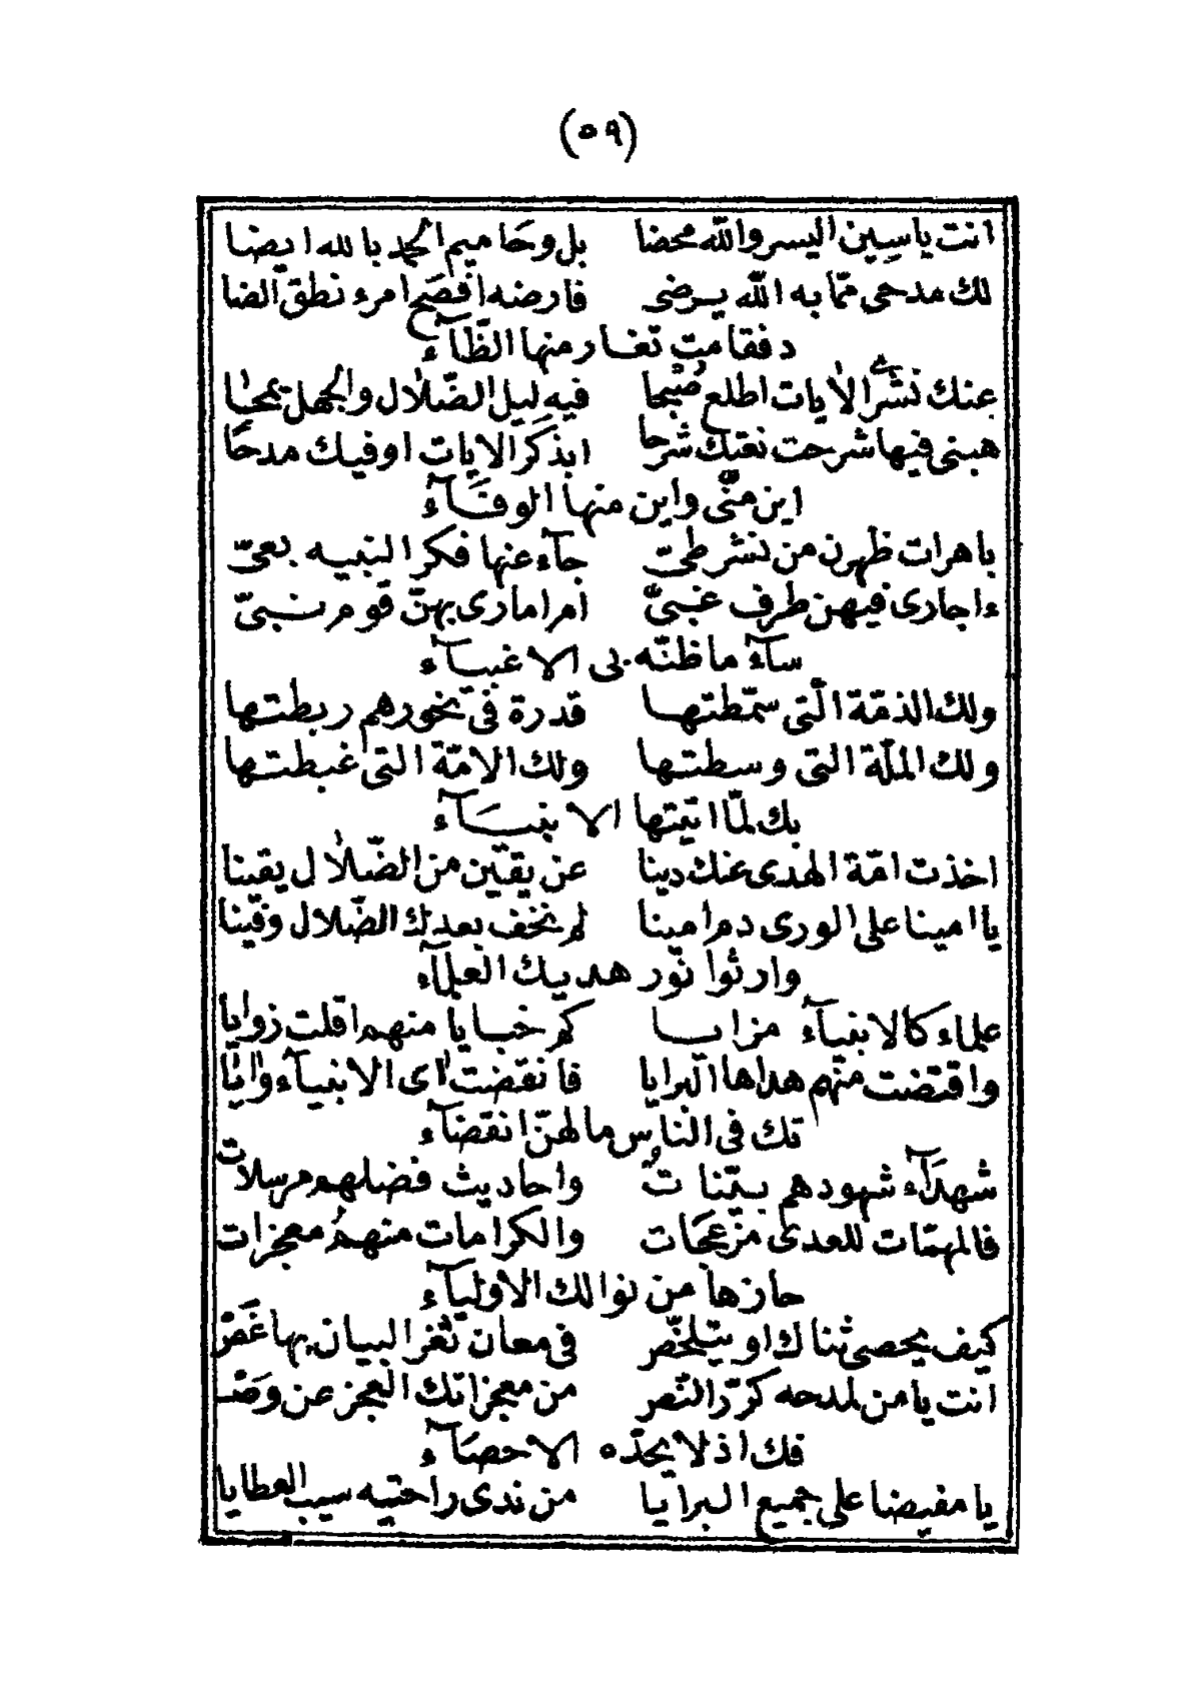 (٥٩)
انت ياسين اليسر والله محضا بل وحاميم الحمد بالله ايضا
لك مدحى ممّا به الله يرضى فارضه افصح امرء نطق الضا
د فقامت تغار منها الظّآء
عنك نشر الاٰيات اطلع صُبحا فيه ليل الضّلاٰل والجهل يمحٰا
هبنى فيها شرحت نعتك شرحا ابذكر الايات اوفيك مدحَا
اين منّى واين منها الوفَآء
باهرات ظهرن من نشر طىّ جآء عنها فكر النبيه بعىّ
ءاجارى فيهن طرف غبىّ أمر امارى بهنّ قوم نبىّ
سآء ما ظنّه بى الاغبيآء
ولك الذمّة الّتى سمّطتها قدرة فى نحورهم ربطتها
ولك الملّة التى وسطتها ولك الامّة التى غبطتها
بك لمّا اتيتها الانبيَآء
اخذت امّة الهدى عنك دينا عن يقين من الضّلاٰل يقينا
يا امينا على الورى دم امينا لم نخف بعدك الضّلال وفينا
وارثوا نور هديك العلمآء
علماء كالانبيآء مزايا كم خبايا منهم اقلت زوايا
واقتضت منهم هداها البرايا فانقضت اٰى الانبيآء واٰيا
تك فى الناس مالهنّ انقضآء
شهدَآء شهودهم بيّنات واحاديث فضلهم مرسلات
فالمهمّات للعدى مزعجَات والكرامات منهمُ معجزات
حازها من نوالك الاوليآء
كيف يحصى ثناك او يتلخّص فى معان ثغر البيان بها غَصّ
انت يا من لمدحه كرّر النّص من معجزاتك العجز عن وَصْـ
فك اذ لا يحدّه الاحصَآء
يا مفيضا على جميع البرايا من ندى راحتيه سيب العطايا